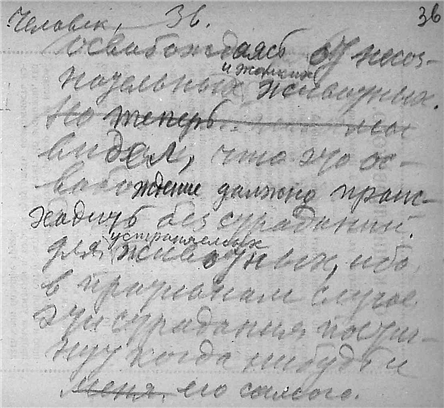 Человек, 36. 36
освобождаясь от несоз-
и жалких
нательных животных.
Но теперь мы
видел, что это ос-
вобождение должно проис-
ходить без страданий
устраняемых
для животных, ибо,
в противном случае
эти страдания постиг-
нут когда нибудь и
меня его самого.